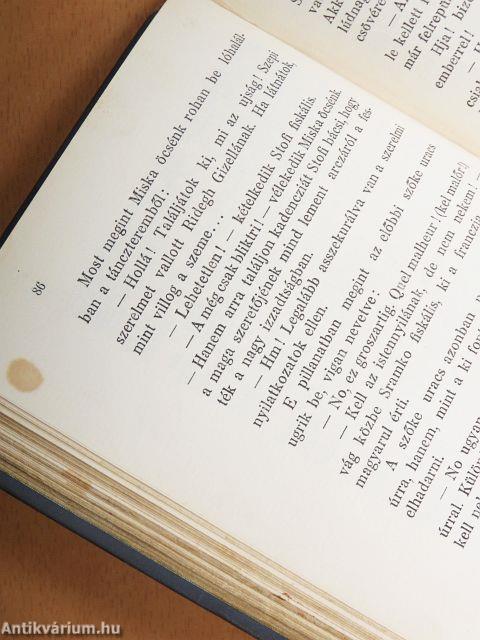 86
Most megint Miska öcsénk rohan be lóhalál-
ban a tánczteremből:
— Hollá! Találjátok ki, mi az ujság! Szepi
szerelmet vallott Ridegh Gizellának. Ha látnátok,
mint villog a szeme...
— Lehetetlen! — kételkedik Stofi fiskális.
— A még csak bliktri! — vélekedik Miska öcsénk
— Hanem arra találjon kadencziát Stofi bácsi, hogy
a maga szeretőjének mind lement arczáról a fes-
ték a nagy izzadtságban.
— Hm! Legalább asszekurálva van a szerelmi
nyilatkozatok ellen.
E pillanatban megint az előbbi szőke uracs
ugrik be, vigan nevetve:
— No, ez groszartig. Quel malheur! (kel malőr!)
— Kell az istennyilának, de nem nekem! —
vág közbe Sramko fiskális, ki a franczia
magyarul érti.
A szőke uracs azonban
úrra, hanem, mint a ki
elhadarni.
— No ugyan
úrral.
kell
Akk
lúdnag
csővére
— A
le kellett
már felrepü
— Hja! biz
emberrel!
csial
Antikvárium.hu